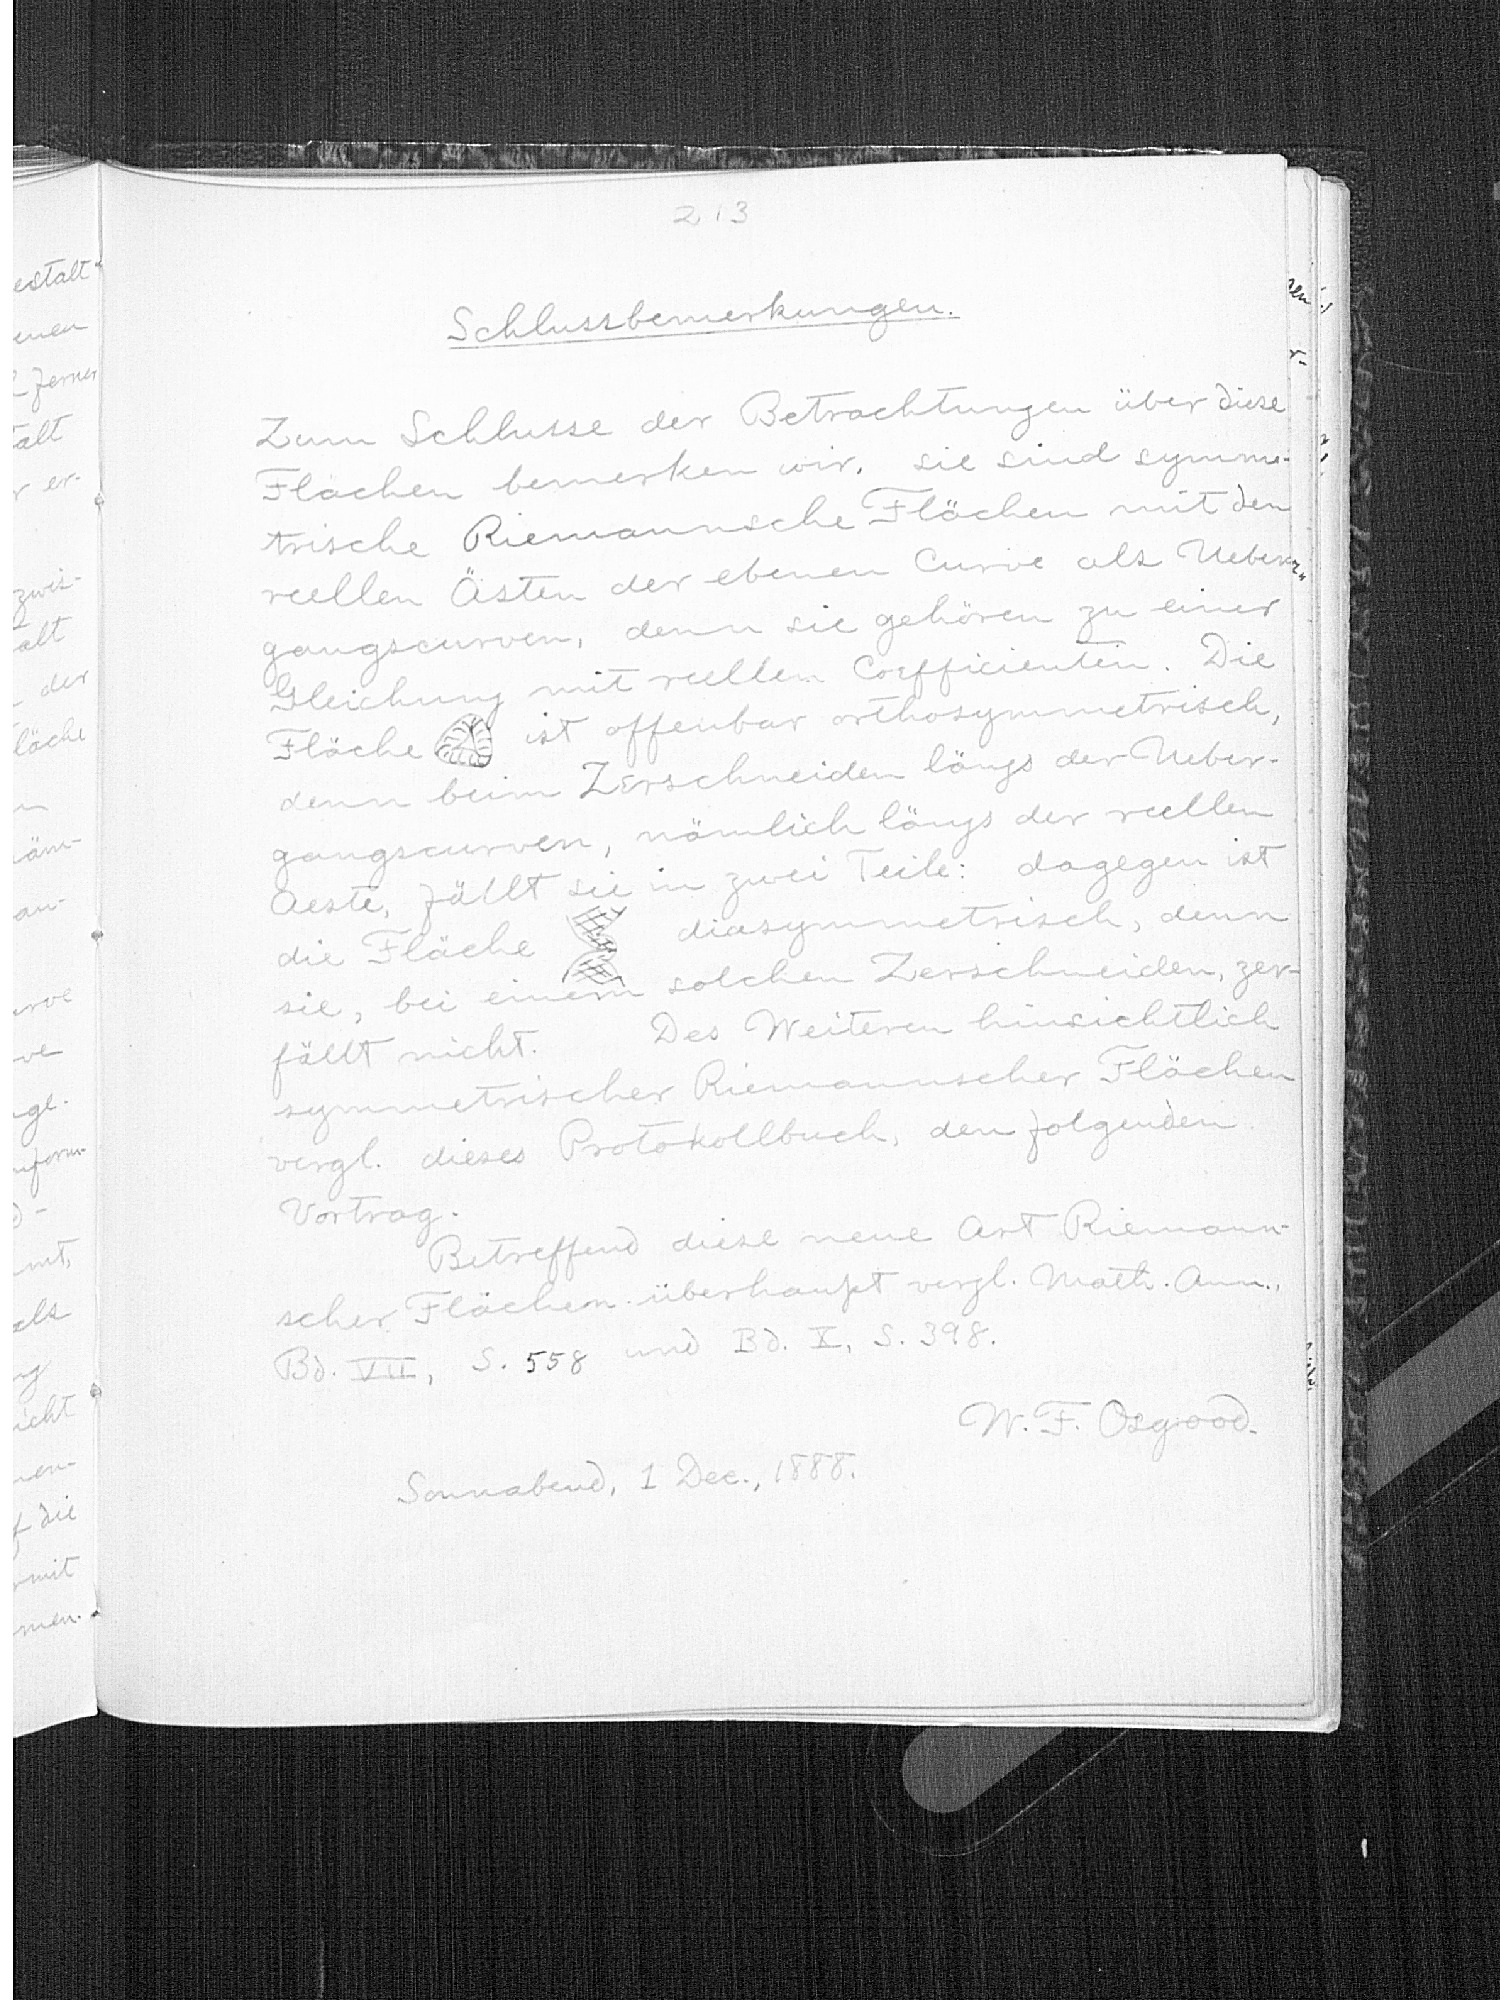 213
Schlussbemerkungen.
Zum Schlusse der Betrachtungen über diese
Flächen bemerken wir, sie sind symme-
trische Riemannsche Flächen mit den
reellen Ästen der ebenen Curve als Ueber-
gangscurven, denn sie gehören zu einer
Gleichung mit reellen Coefficienten. Die
Fläche ist offenbar orthosymmetrisch,
denn beim Zerschneiden längs der Ueber-
gangscurven, nämlich längs der reellen
Aeste, fällt sie in zwei Teile: dagegen ist
die Fläche diasymmetrisch, denn
sie, bei einem solchen Zerschneiden, zer-
fällt nicht. Des Weiteren hinsichtlich
symmetrischer Riemannscher Flächen
vergl. dieses Protokollbuch, den folgenden
Vortrag.
Betreffend diese neue Art Riemann-
scher Flächen überhaupt vergl. Math. Ann.,
Bd. VII, S. 558 und Bd. X, S. 398.
W. F. Osgood.
Sonnabend, 1 Dec., 1888.